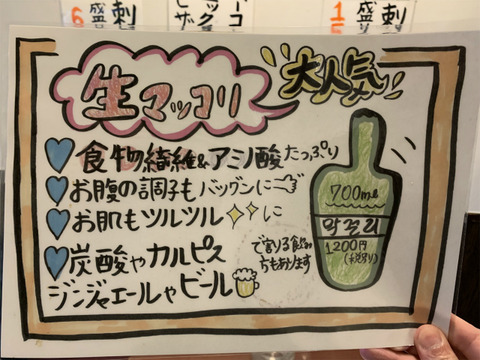 6 盛 刺
1 盛 刺
大人気
生マッコリ
食物繊維&アミノ酸たっぷり
お腹の調子もバツグンに
お肌もツルツルに
炭酸やカルピス
ジンジャエールやビール
で割る飲み方もあります
700ml
막걸리
1200円
(税別)